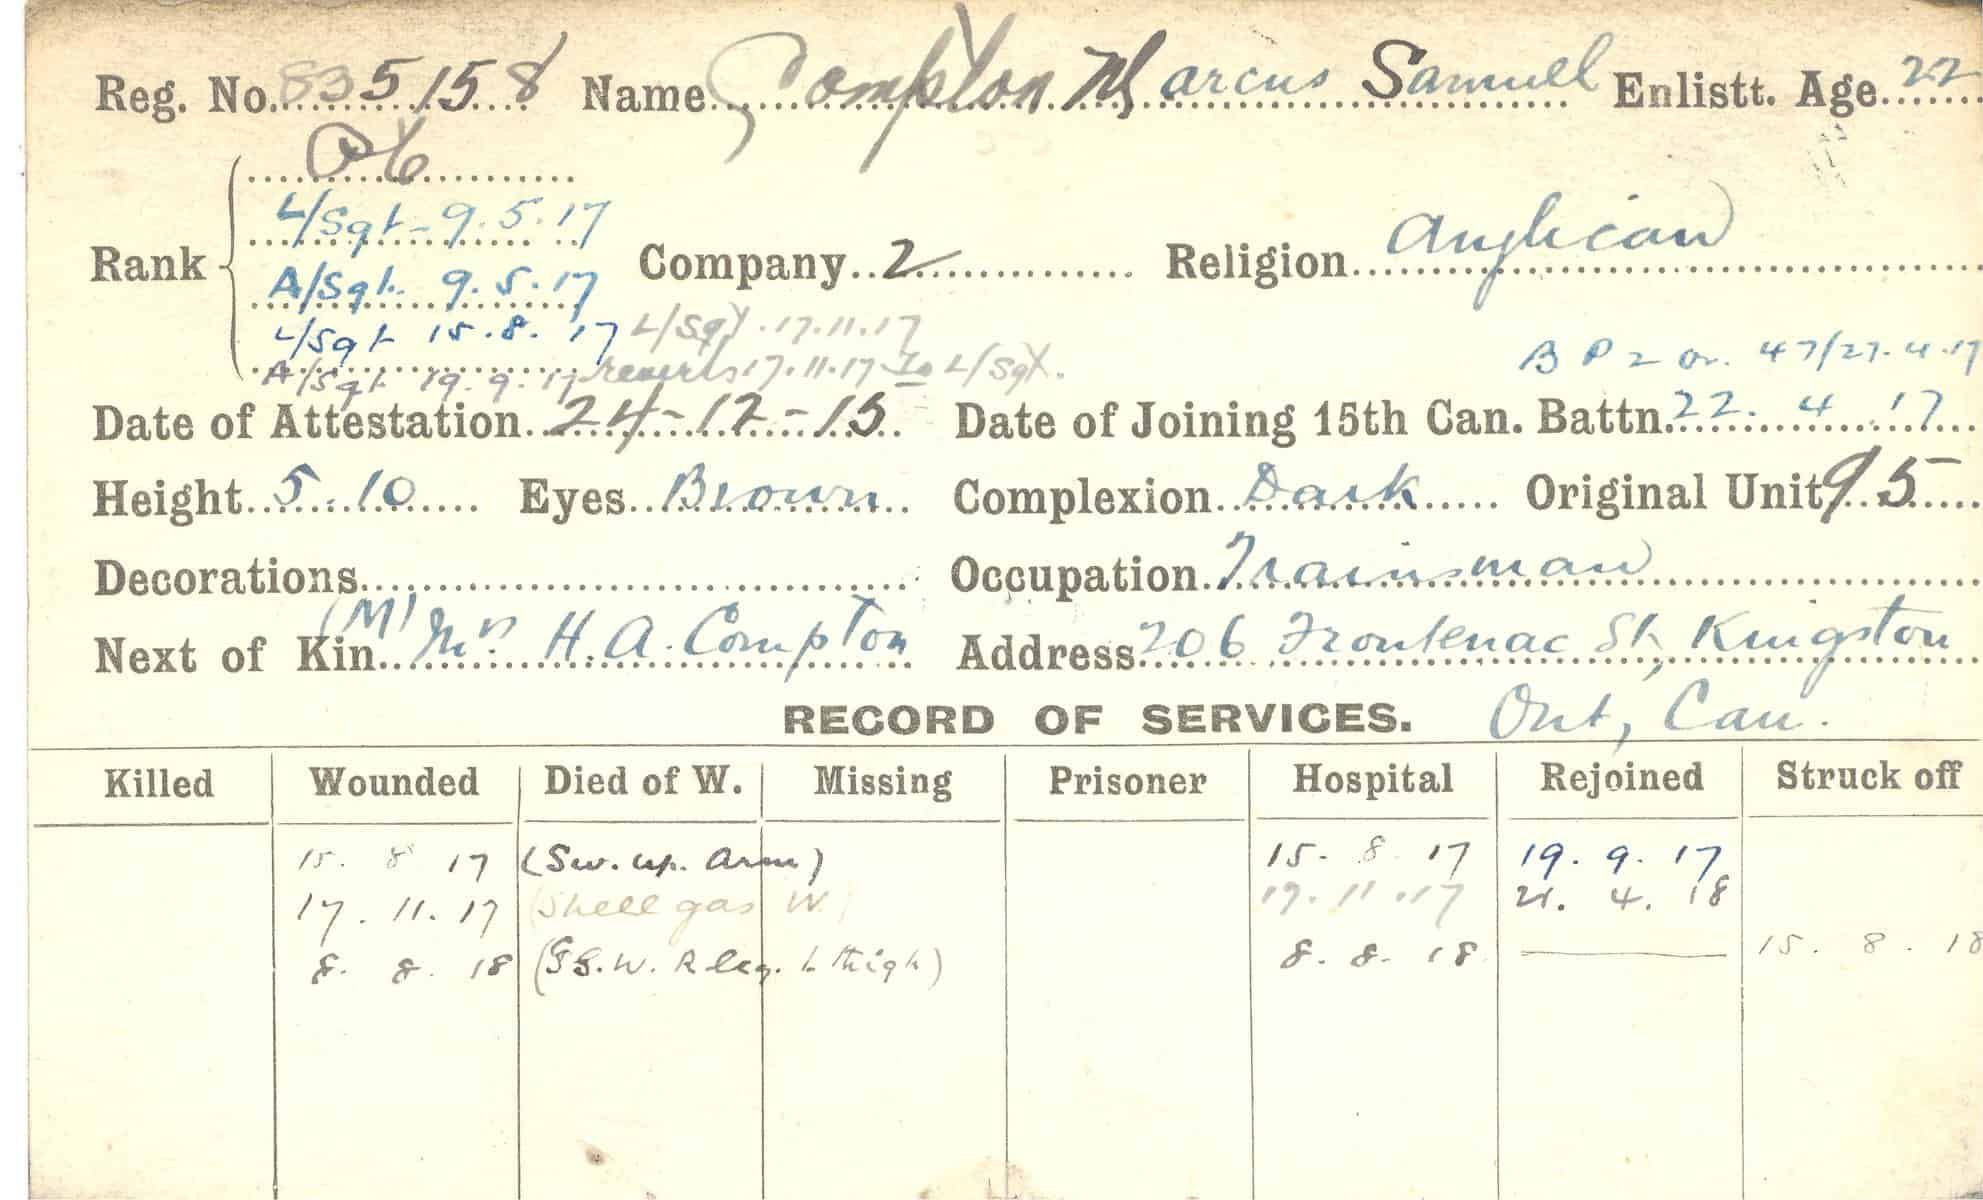 Reg. No. 835158 Name Compton Marcus Samuel Enlistt. Age 22
L/Sgt - 9.5.17
Anglican
Rank A/Sgt. 9.5.17 Company 2 Religion
L/Sgt 15.8.17 L/Sgt. 17.11.17
A/Sgt 19.9.17 reverts 17.11.17 to L/Sgt.
B P 2 Or. 47/27.4.17
Date of Attestation 24-12-15 Date of Joining 15th Can. Battn. 22.4.17
Height 5.10 Eyes Brown Complexion Dark Original Unit 95
Decorations Occupation Trainsman
Next of Kin (M) Mrs H.A. Compton Address 206 Frontenac St, Kingston
RECORD OF SERVICES. Ont, Can.
Killed Wounded Died of W. Missing Prisoner Hospital Rejoined Struck off
15. 8 17 (Sw. up. Arm) 15. 8. 17 19. 9. 17
17. 11. 17 (Shell gas W.) 17. 11. 17 21. 4. 18
8. 8. 18 (G.S.W. R leg. L thigh) 8. 8. 18 — 15. 8. 18